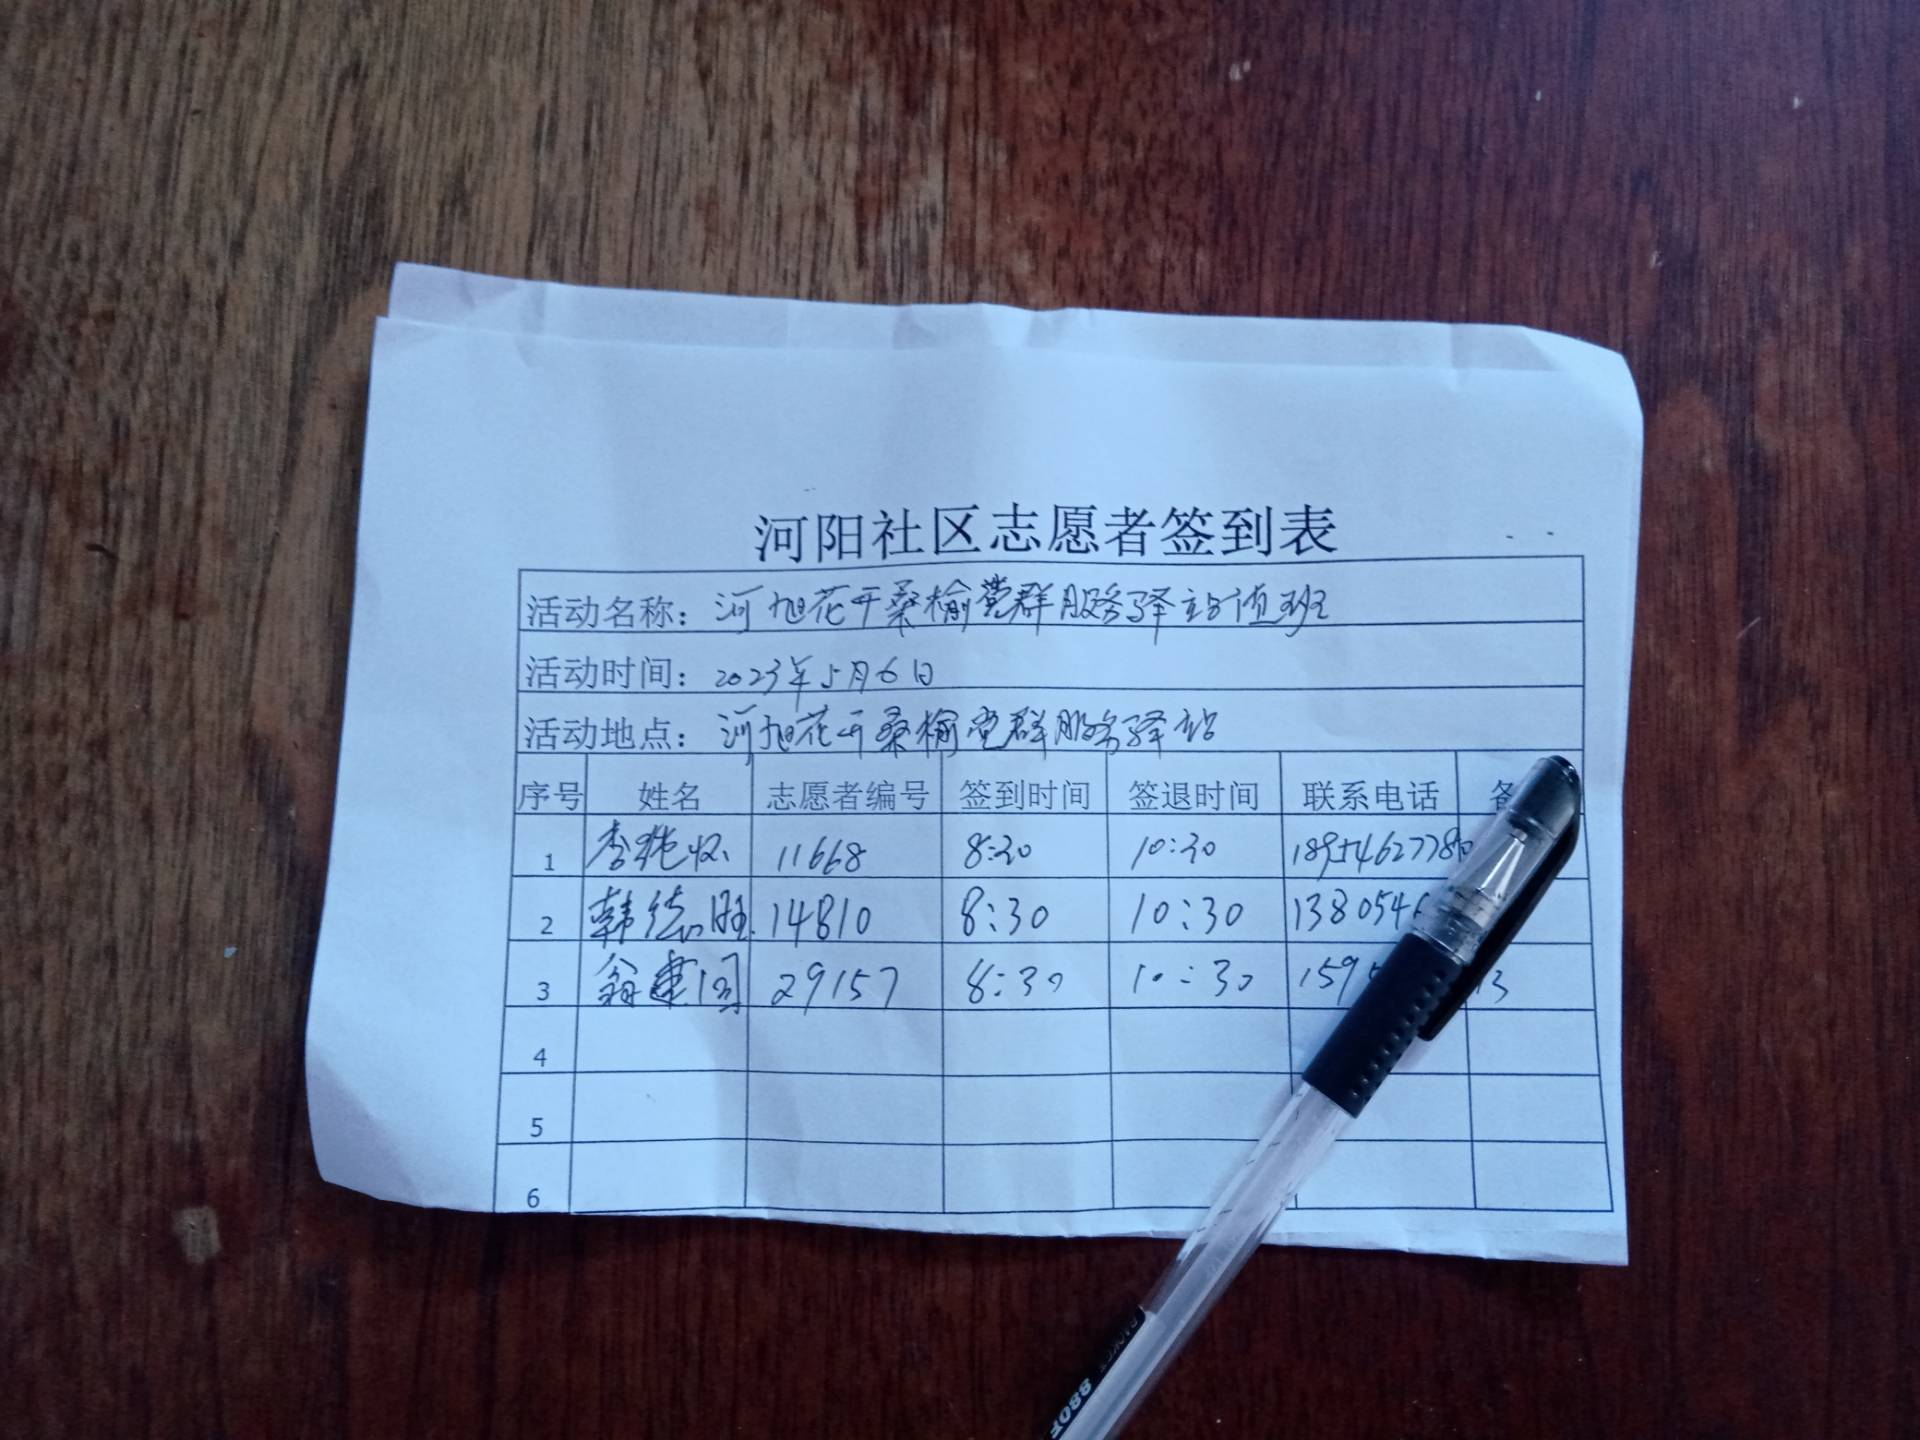 河阳社区志愿者签到表
活动名称：河旭花开桑榆党群服务驿站值班
活动时间：2023年5月6日
活动地点：河旭花开桑榆党群服务驿站
序号 姓名 志愿者编号 签到时间 签退时间 联系电话 备
1 李纯怀 11668 8:30 10:30
2 韩德旺 14810 8:30 10:30 138054
3 翁建国 29157 8:30 10:30 159 13
4
5
6
880F